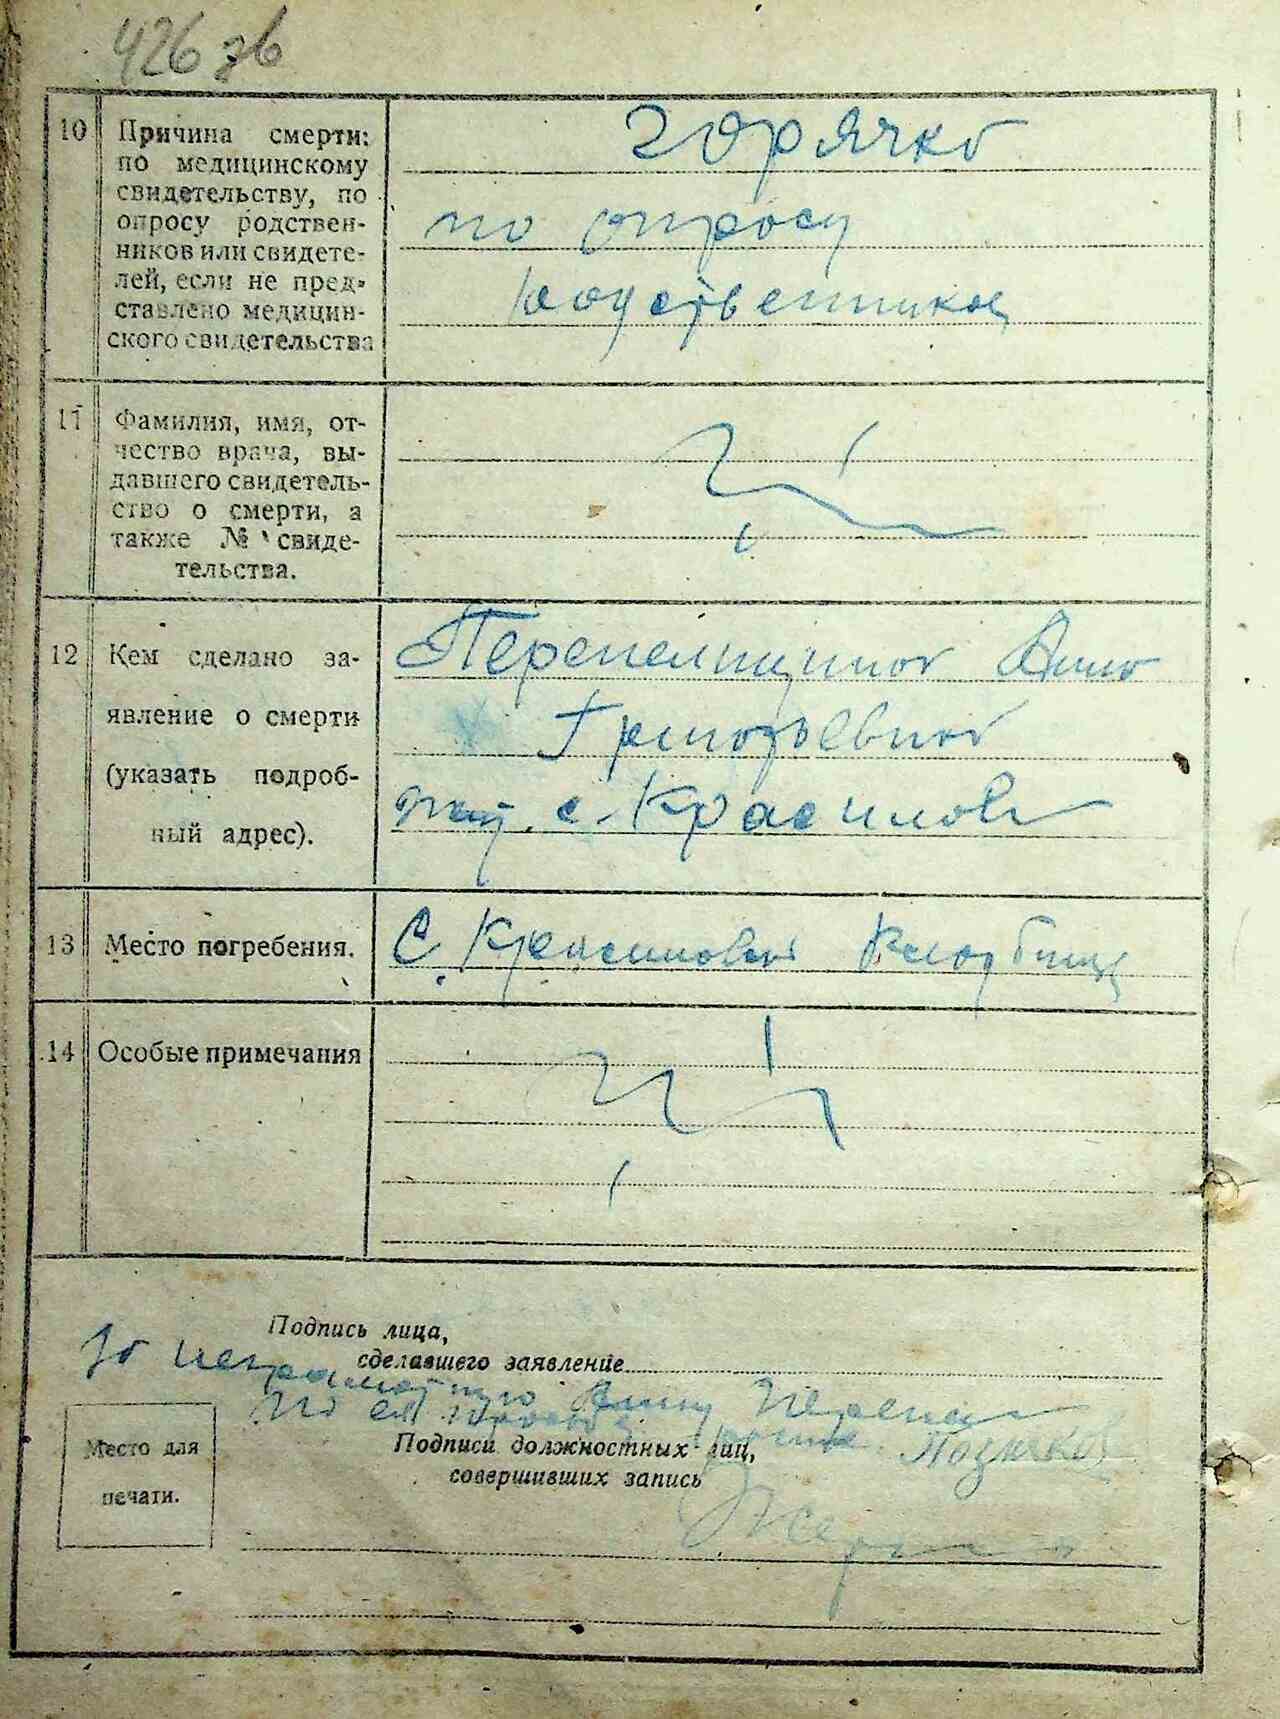 426 зв
10 Причина смерти:
по медицинскому
свидетельству, по
опросу родствен-
ников или свидете-
лей, если не пред-
ставлено медицин-
ского свидетельства
горячка
по опросу
родственников
11 Фамилия, имя, от-
чество врача, вы-
давшего свидетель-
ство о смерти, а
также № свиде-
тельства.
12 Кем сделано за-
явление о смерти
(указать подроб-
ный адрес).
Анна
Григорьевной
с. Красилов
13 Место погребения.
С. Кладбище
14 Особые примечания
Подпись лица,
сделавшего заявление
За неграмотную Анну
по ея просьбе
Подписи должностных лиц,
совершивших запись
Место для
печати.